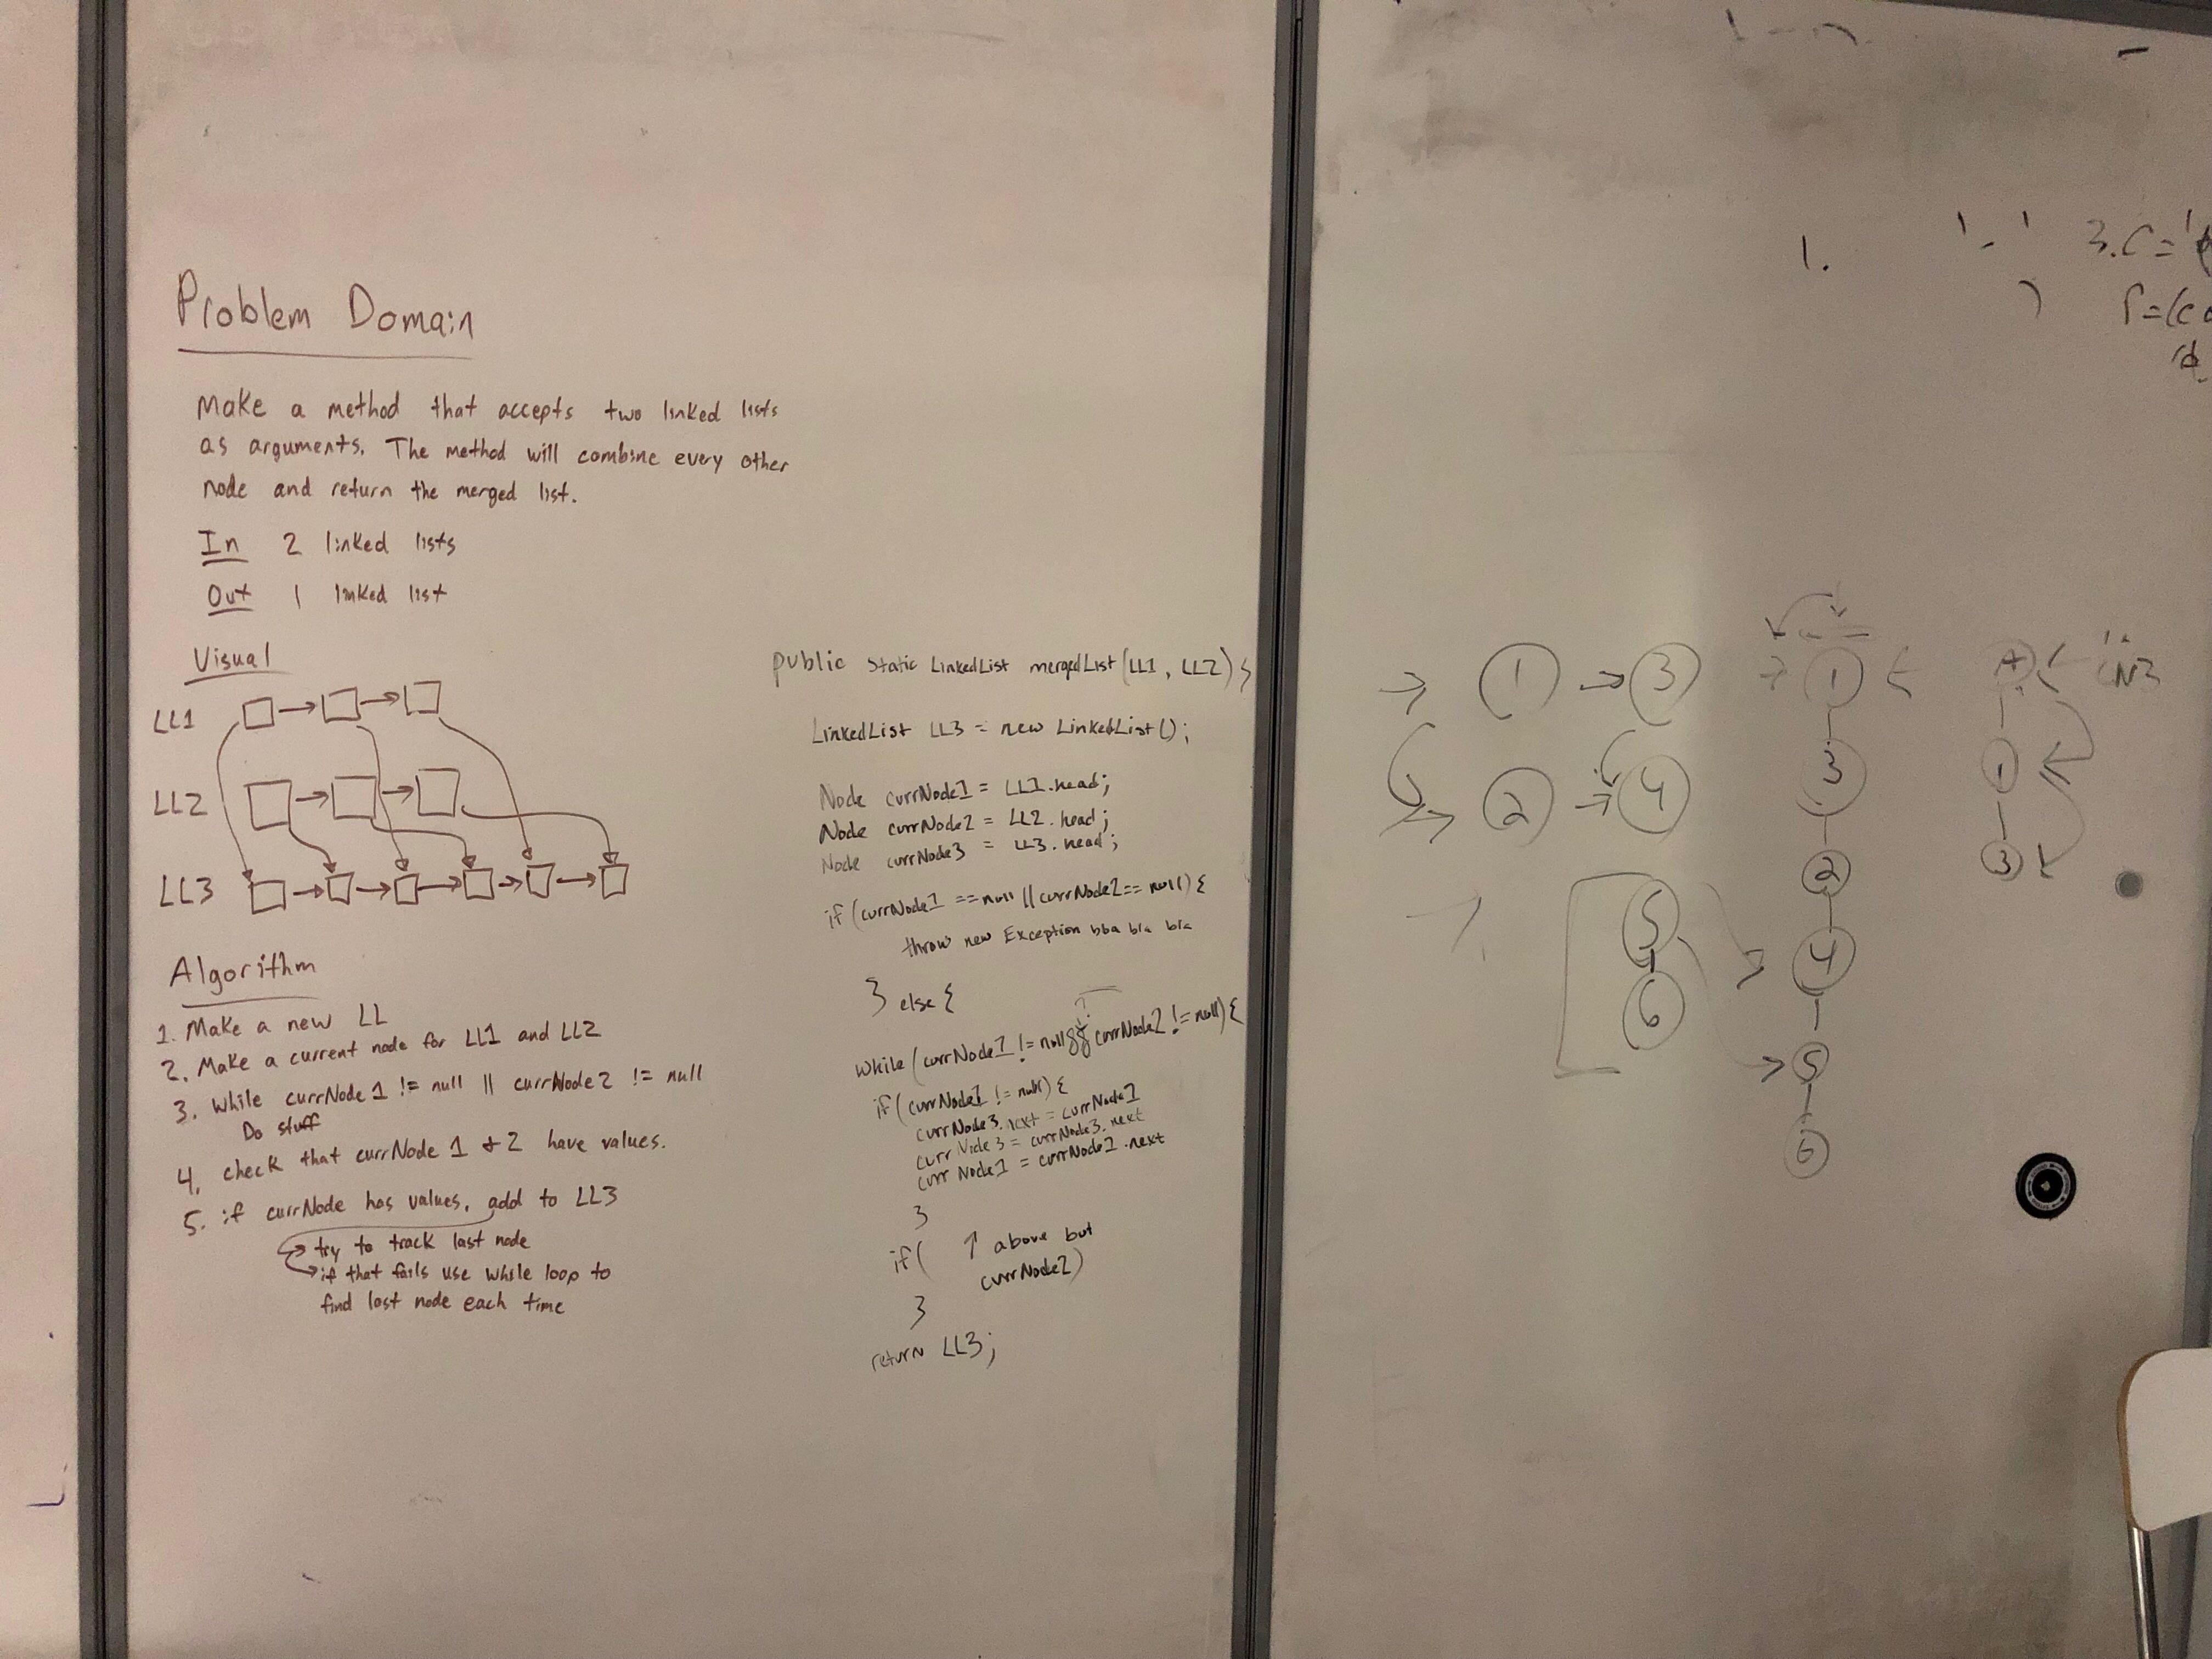 Problem Domain
Make a method that accepts two linked lists
as arguments. The method will combine every other
node and return the merged list.
In 2 linked lists
Out 1 linked list
Visual
LL1
LL2
LL3
Algorithm
1. Make a new LL
2. Make a current node for LL1 and LL2
3. While currNode1 != null || currNode2 != null
Do stuff
4. check that currNode 1 + 2 have values.
5. if currNode has values, add to LL3
try to track last node
if that fails use while loop to
find last node each time
public static LinkedList mergedList(LL1, LL2) {
LinkedList LL3 = new LinkedList();
Node currNode1 = LL1.head;
Node currNode2 = LL2.head;
Node currNode3 = LL3.head;
if (currNode1 == null || currNode2 == null) {
throw new Exception bba bla bla
} else {
while (currNode1 != null && currNode2 != null) {
if (currNode1 != null) {
currNode3.next = currNode1
currNode3 = currNode3.next
currNode1 = currNode1.next
}
if ( ↑ above but
currNode2)
}
return LL3;
1. ' - ' 3.C =
1 → 3
2 → 4
5
6
1
3
2
4
5
6
A
1
3